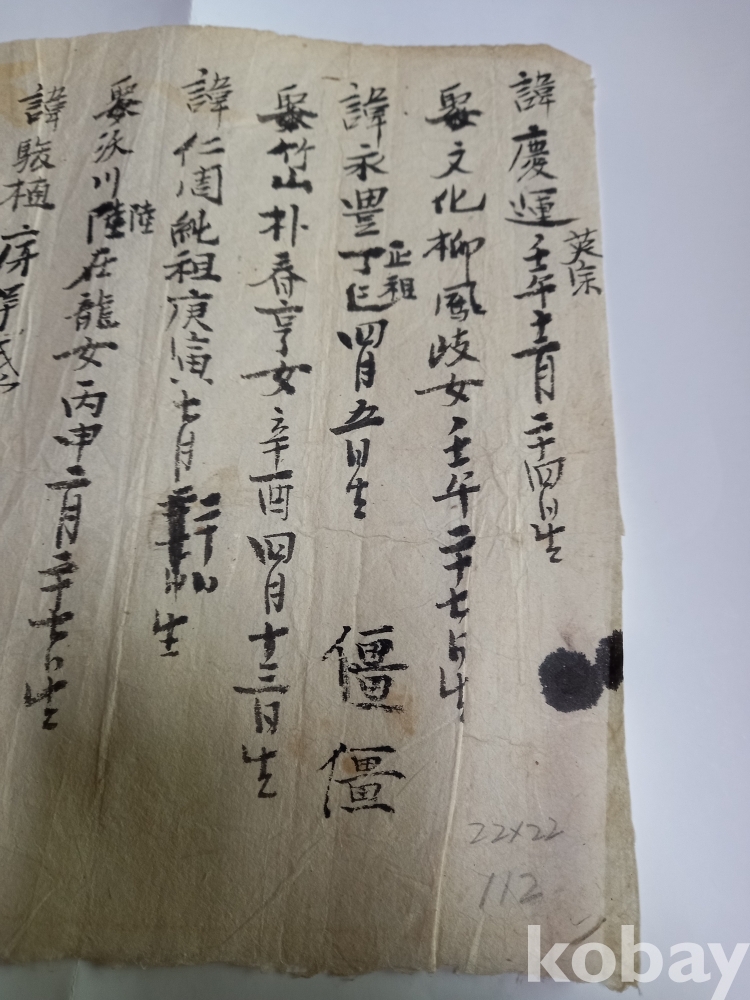 諱慶運英宗壬午十二月二十四日生
娶文化柳風岐女壬午二十七日生
諱永豊正祖丁巳四月五日生
僵僵
娶竹山朴春亨女辛酉四月十三日生
諱仁周純祖庚寅七月二十日生
娶沃川陸陸在龍女丙申二月二十七日生
諱駿植
22×22
112
kobay